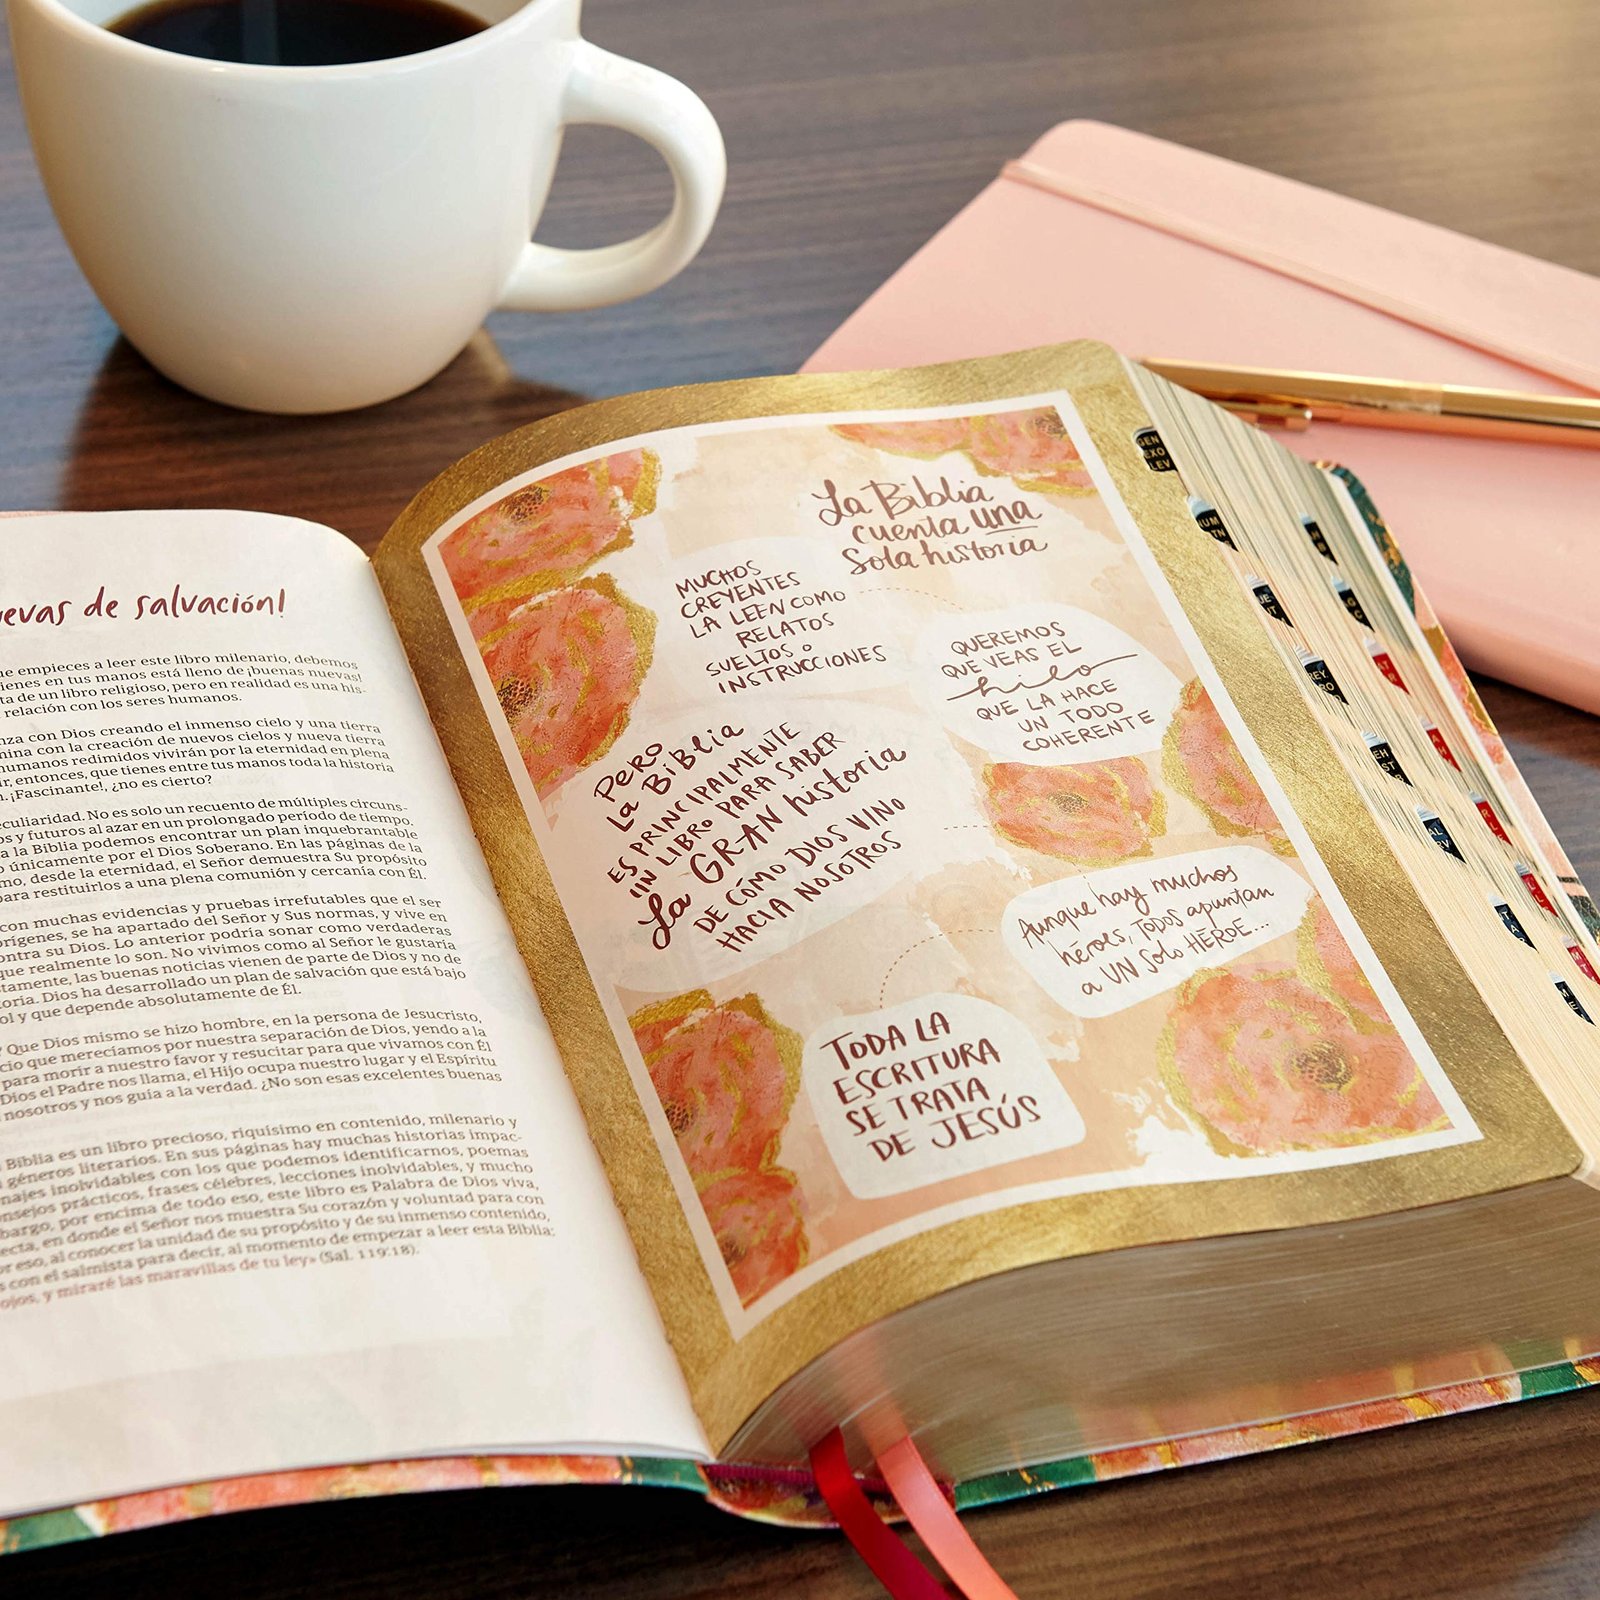 de salvación!
empieces a leer este libro milenario, debemos
tienes en tus manos está lleno de ¡buenas nuevas!
ta de un libro religioso, pero en realidad es una his-
relación con los seres humanos.
con Dios creando el inmenso cielo y una tierra
con la creación de nuevos cielos y nueva tierra
humanos redimidos vivirán por la eternidad en plena
entonces, que tienes entre tus manos toda la historia
¡Fascinante!, ¿no es cierto?
No es solo un recuento de múltiples circuns-
y futuros al azar en un prolongado período de tiempo.
a la Biblia podemos encontrar un plan inquebrantable
únicamente por el Dios Soberano. En las páginas de la
mo, desde la eternidad, el Señor demuestra Su propósito
para restituirlos a una plena comunión y cercanía con Él.
con muchas evidencias y pruebas irrefutables que el ser
orígenes, se ha apartado del Señor y Sus normas, y vive en
contra su Dios. Lo anterior podría sonar como verdaderas
que realmente lo son. No vivimos como al Señor le gustaría
las buenas noticias vienen de parte de Dios y no de
Dios ha desarrollado un plan de salvación que está bajo
y que depende absolutamente de Él.
Que Dios mismo se hizo hombre, en la persona de Jesucristo,
que merecíamos por nuestra separación de Dios, yendo a la
para morir a nuestro favor y resucitar para que vivamos con Él
Dios el Padre nos llama, el Hijo ocupa nuestro lugar y el Espíritu
nosotros y nos guía a la verdad. ¿No son esas excelentes buenas
Biblia es un libro precioso, riquísimo en contenido, milenario y
géneros literarios. En sus páginas hay muchas historias impac-
najes inolvidables con los que podemos identificarnos, poemas
prácticos, frases célebres, lecciones inolvidables, y mucho
por encima de todo eso, este libro es Palabra de Dios viva,
en donde el Señor nos muestra Su corazón y voluntad para con
eso, al conocer la unidad de su propósito y de su inmenso contenido,
con el salmista para decir, al momento de empezar a leer esta Biblia:
ojos, y miraré las maravillas de tu ley» (Sal. 119:18).
La Biblia
cuenta una
sola historia
MUCHOS
CREYENTES
LA LEEN COMO
RELATOS
SUELTOS O
INSTRUCCIONES
QUEREMOS
QUE VEAS EL
hilo
QUE LA HACE
UN TODO
COHERENTE
PERO
LA BIBLIA
ES PRINCIPALMENTE
UN LIBRO PARA SABER
La GRAN historia
DE CÓMO DIOS VINO
HACIA NOSOTROS
Aunque hay muchos
héroes, TODOS apuntan
a UN Solo HÉROE...
TODA LA
ESCRITURA
SE TRATA
DE JESÚS
GEN
EXO
LEV